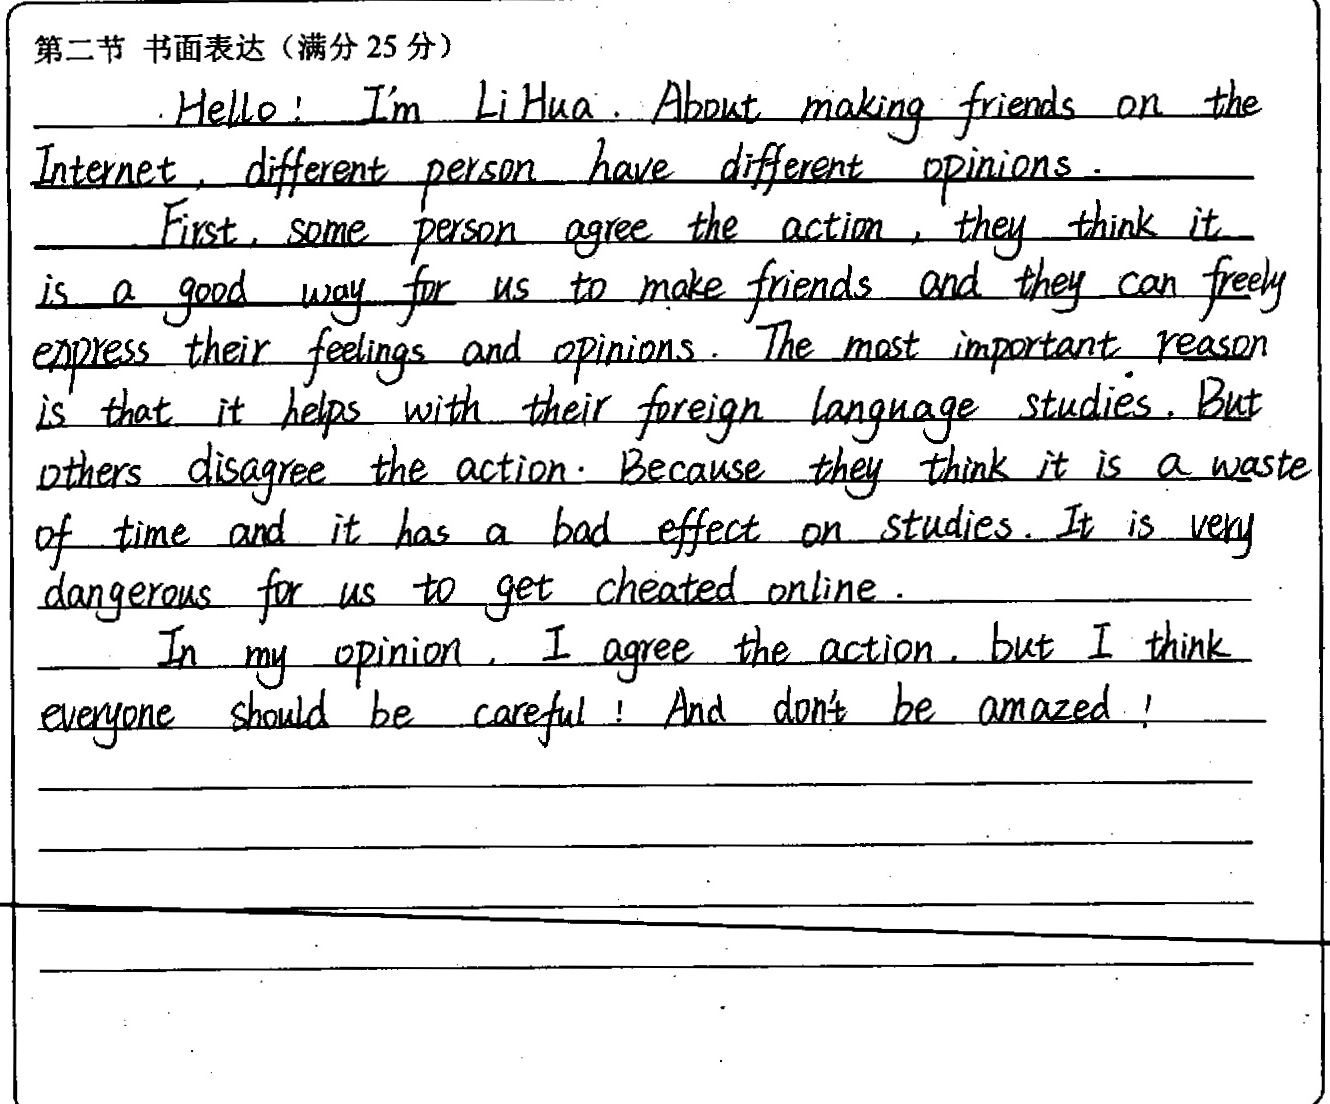 第二节 书面表达（满分 25 分）
Hello! I'm Li Hua. About making friends on the
Internet, different person have different opinions.
First, some person agree the action, they think it
is a good way for us to make friends and they can freely
express their feelings and opinions. The most important reason
is that it helps with their foreign language studies. But
others disagree the action. Because they think it is a waste
of time and it has a bad effect on studies. It is very
dangerous for us to get cheated online.
In my opinion, I agree the action, but I think
everyone should be careful! And don't be amazed!